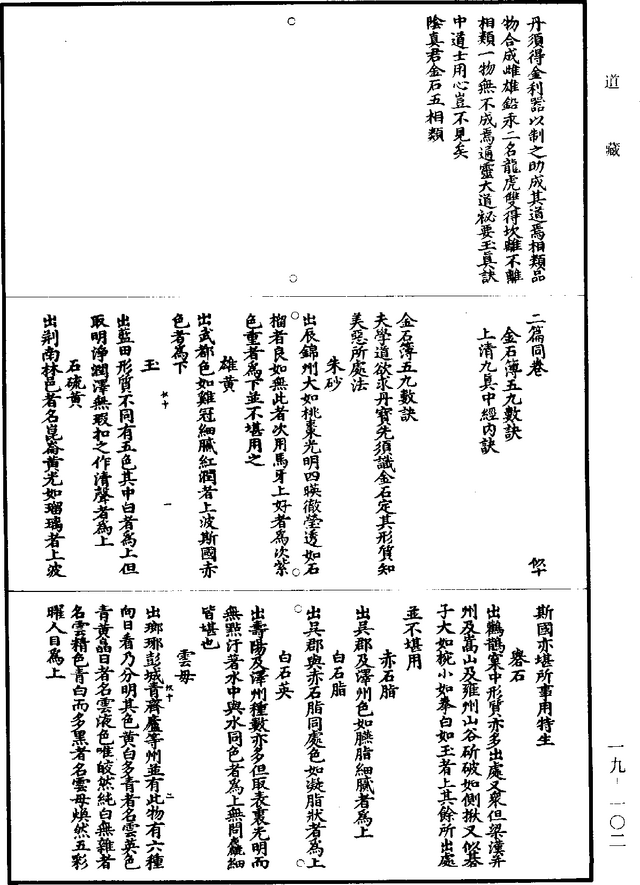 道藏
丹須得金利器以制之助成其道焉相類品
物合成雌雄鉛汞二名龍虎雙得坎離不離
相類一物無不成焉通靈大道祕要玉真訣
中道士用心豈不見矣
陰真君金石五相類
二篇同卷 似十
金石簿五九數訣
上清九真中經內訣
金石簿五九數訣
夫學道欲求丹寶先須識金石定其形質知
美惡所處法
朱砂
出辰錦州大如桃棗光明四暎徹瑩透如石
榴者良如無此者次用馬牙上好者為次紫
色重者為下並不堪用之
雄黃
出武都色如雞冠細膩紅潤者上波斯國赤
色者為下
似十 一
玉
出藍田形質不同有五色其中白者為上但
取明淨潤澤無瑕扣之作清聲者為上
石硫黃
出荊南林邑者名崑崙黃光如瑠璃者上波
斯國亦堪所事用特生
礜石
出鸛鵲窠中形質亦多出處又衆但梁漢弄
州及嵩山及雍州山谷斫破如側揪又似碁
子大如椀小如拳白如玉者上其餘所出處
並不堪用
赤石脂
出吳郡及澤州色如臙脂細膩者為上
白石脂
出吳郡與赤石脂同處色如凝脂狀者為上
白石英
出壽陽及澤州種數亦多但取表裏光明而
無黑汙著水中與水同色者為上無問麤細
皆堪也
雲母
出瑯琊彭城青齊廬等州並有此物有六種
似十 二
向日看乃分明其色黃白多青者名雲英色
青黃晶日者名雲液色唯皎然純白無雜者
名雲精色青白而多黑者名雲母煥然五彩
曜人目為上
一九-一〇二